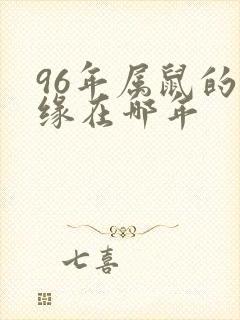 96年属鼠的
缘在哪年
七喜